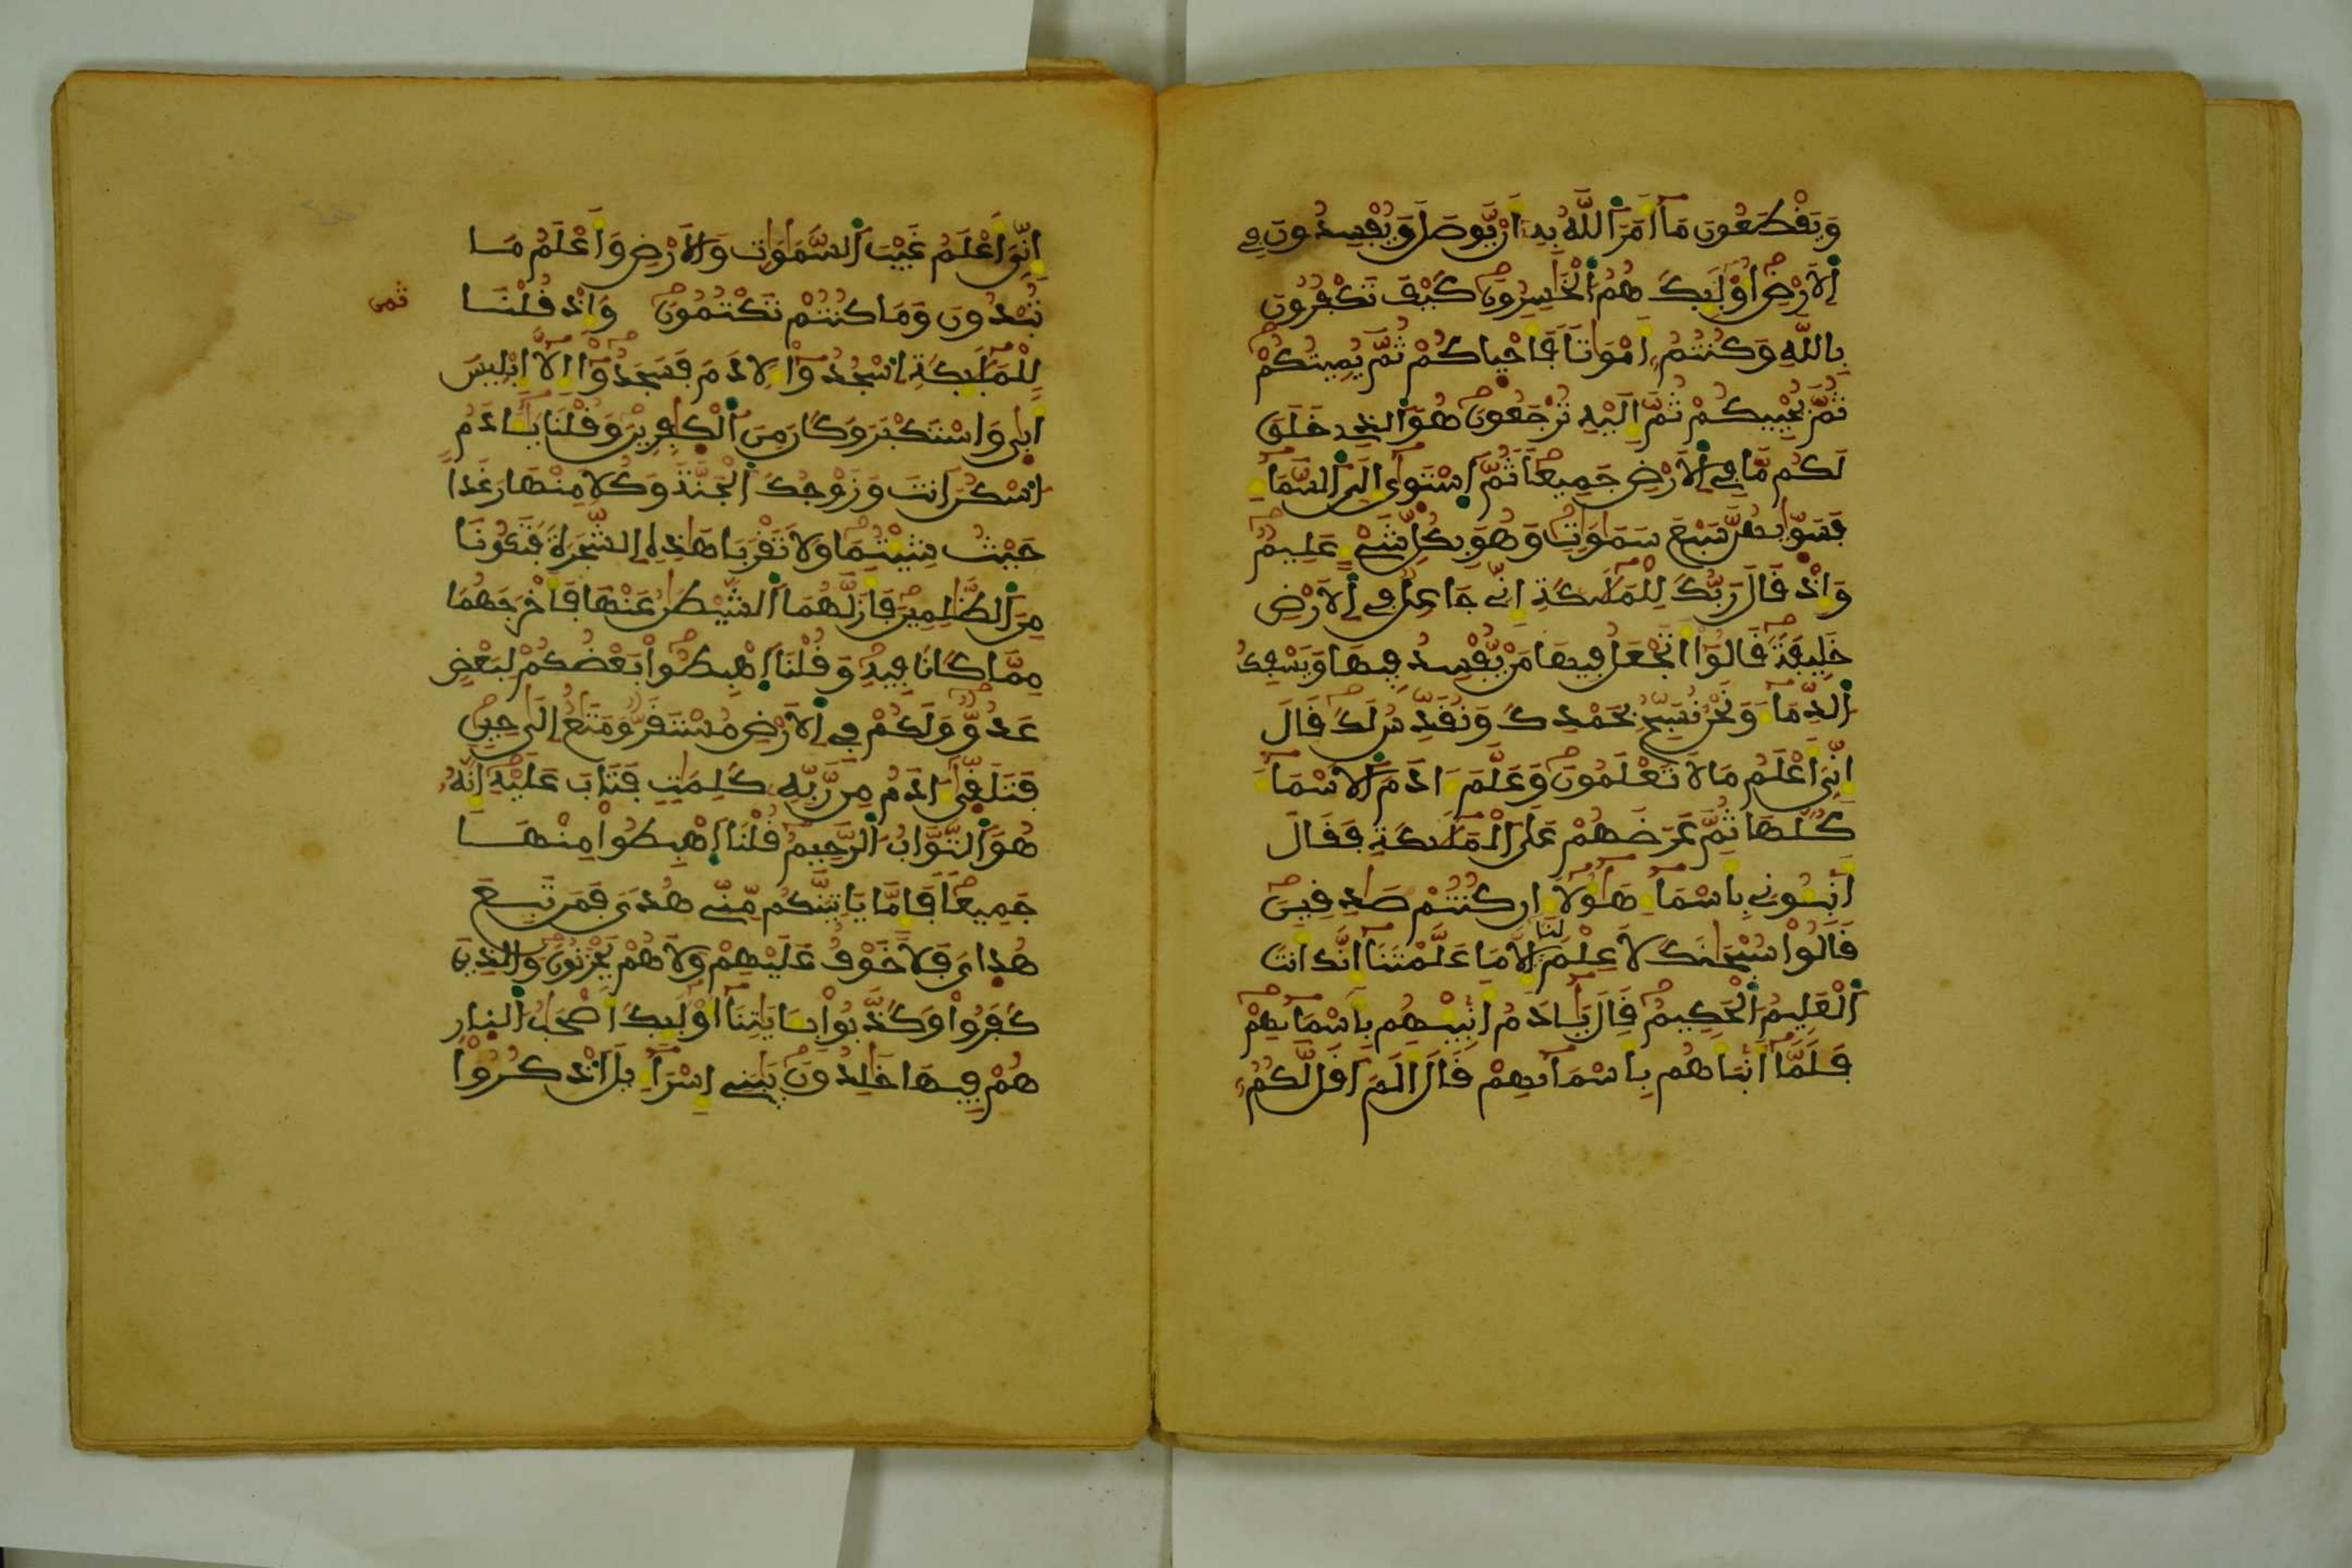 وَيَقْطَعُونَ مَآ أَمَرَ اَللَّهُ بِهِۦٓ أَنْ يُّوصَلَ وَيُفْسِدُونَ فِے
اِ۬لَارْضِ أُوْلَٰٓئِكَ هُمُ اُ۬لْخَٰسِرُونَ كَيْفَ تَكْفُرُونَ
بِاللَّهِ وَكُنتُمُۥٓ أَمْوَٰتاٗ فَأَحْيٰاكُمْ ثُمَّ يُمِيتُكُمْ
ثُمَّ يُحْيِيكُمْ ثُمَّ إِلَيْهِ تُرْجَعُونَ هُوَ اَ۬لذِے خَلَقَ
لَكُم مَّا فِے اِ۬لَارْضِ جَمِيعاٗ ثُمَّ اَ۪سْتَوَىٰٓ إِلَى اَ۬لسَّمَآءِ
فَسَوّٰيٰهُنَّ سَبْعَ سَمَٰوَٰتٖ وَهُوَ بِكُلِّ شَےْءٍ عَلِيمٞ
وَإِذْ قَالَ رَبُّكَ لِلْمَلَٰٓئِكَةِ إِنِّے جَاعِلٞ فِے اِ۬لَارْضِ
خَلِيفَةٗ قَالُوٓاْ أَتَجْعَلُ فِيهَا مَنْ يُّفْسِدُ فِيهَا وَيَسْفِكُ
اُ۬لدِّمَآءَ وَنَحْنُ نُسَبِّحُ بِحَمْدِكَ وَنُقَدِّسُ لَكَ قَالَ
إِنِّيَ أَعْلَمُ مَا لَا تَعْلَمُونَ وَعَلَّمَ ءَادَمَ اَ۬لَاسْمَآءَ
كُلَّهَا ثُمَّ عَرَضَهُمْ عَلَى اَ۬لْمَلَٰٓئِكَةِ فَقَالَ
أَنۢبِـُٔونِے بِأَسْمَآءِ هَٰٓؤُلَآءِ ان كُنتُمْ صَٰدِقِينَ
قَالُواْ سُبْحَٰنَكَ لَا عِلْمَ لَنَآ إِلَّا مَا عَلَّمْتَنَآ إِنَّكَ أَنتَ
اَ۬لْعَلِيمُ اُ۬لْحَكِيمُ قَالَ يَٰٓـَٔادَمُ أَنۢبِئْهُم بِأَسْمَآئِهِمْ
فَلَمَّآ أَنۢبَأَهُم بِأَسْمَآئِهِمْ قَالَ أَلَمَ اَقُل لَّكُمُۥٓ
إِنِّيَ أَعْلَمُ غَيْبَ اَ۬لسَّمَٰوَٰتِ وَالَارْضِ وَأَعْلَمُ مَا
تُبْدُونَ وَمَا كُنتُمْ تَكْتُمُونَ وَإِذْ قُلْنَا
ثمن
لِلْمَلَٰٓئِكَةِ اِ۟سْجُدُواْ لِأٓدَمَ فَسَجَدُوٓاْ إِلَّآ إِبْلِيسَ
أَبَىٰ وَاسْتَكْبَرَ وَكَانَ مِنَ اَ۬لْكٰ۪فِرِينَ وَقُلْنَا يَٰٓـَٔادَمُ
اُ۟سْكُنَ اَنتَ وَزَوْجُكَ اَ۬لْجَنَّةَ وَكُلَا مِنْهَا رَغَداً
حَيْثُ شِئْتُمَا وَلَا تَقْرَبَا هَٰذِهِ اِ۬لشَّجَرَةَ فَتَكُونَا
مِنَ اَ۬لظَّٰلِمِينَ فَأَزَلَّهُمَا اَ۬لشَّيْطَٰنُ عَنْهَا فَأَخْرَجَهُمَا
مِمَّا كَانَا فِيهِ وَقُلْنَا اَ۪هْبِطُواْ بَعْضُكُمْ لِبَعْضٍ
عَدُوّٞ وَلَكُمْ فِے اِ۬لَارْضِ مُسْتَقَرّٞ وَمَتَٰعٌ إِلَىٰ حِينٖ
فَتَلَقَّىٰٓ ءَادَمُ مِن رَّبِّهِۦ كَلِمَٰتٖ فَتَابَ عَلَيْهِ إِنَّهُۥ
هُوَ اَ۬لتَّوَّابُ اُ۬لرَّحِيمُ قُلْنَا اَ۪هْبِطُواْ مِنْهَا
جَمِيعاٗ فَإِمَّا يَاتِيَنَّكُم مِّنِّے هُدىٗ فَمَن تَبِعَ
هُدَايَ فَلَا خَوْفٌ عَلَيْهِمْ وَلَا هُمْ يَحْزَنُونَ وَالذِينَ
كَفَرُواْ وَكَذَّبُواْ بِـَٔايَٰتِنَآ أُوْلَٰٓئِكَ أَصْحَٰبُ اُ۬لنّ۪ارِ
هُمْ فِيهَا خَٰلِدُونَ يَٰبَنِےٓ إِسْرَآءِيلَ اَ۟ذْكُرُواْ